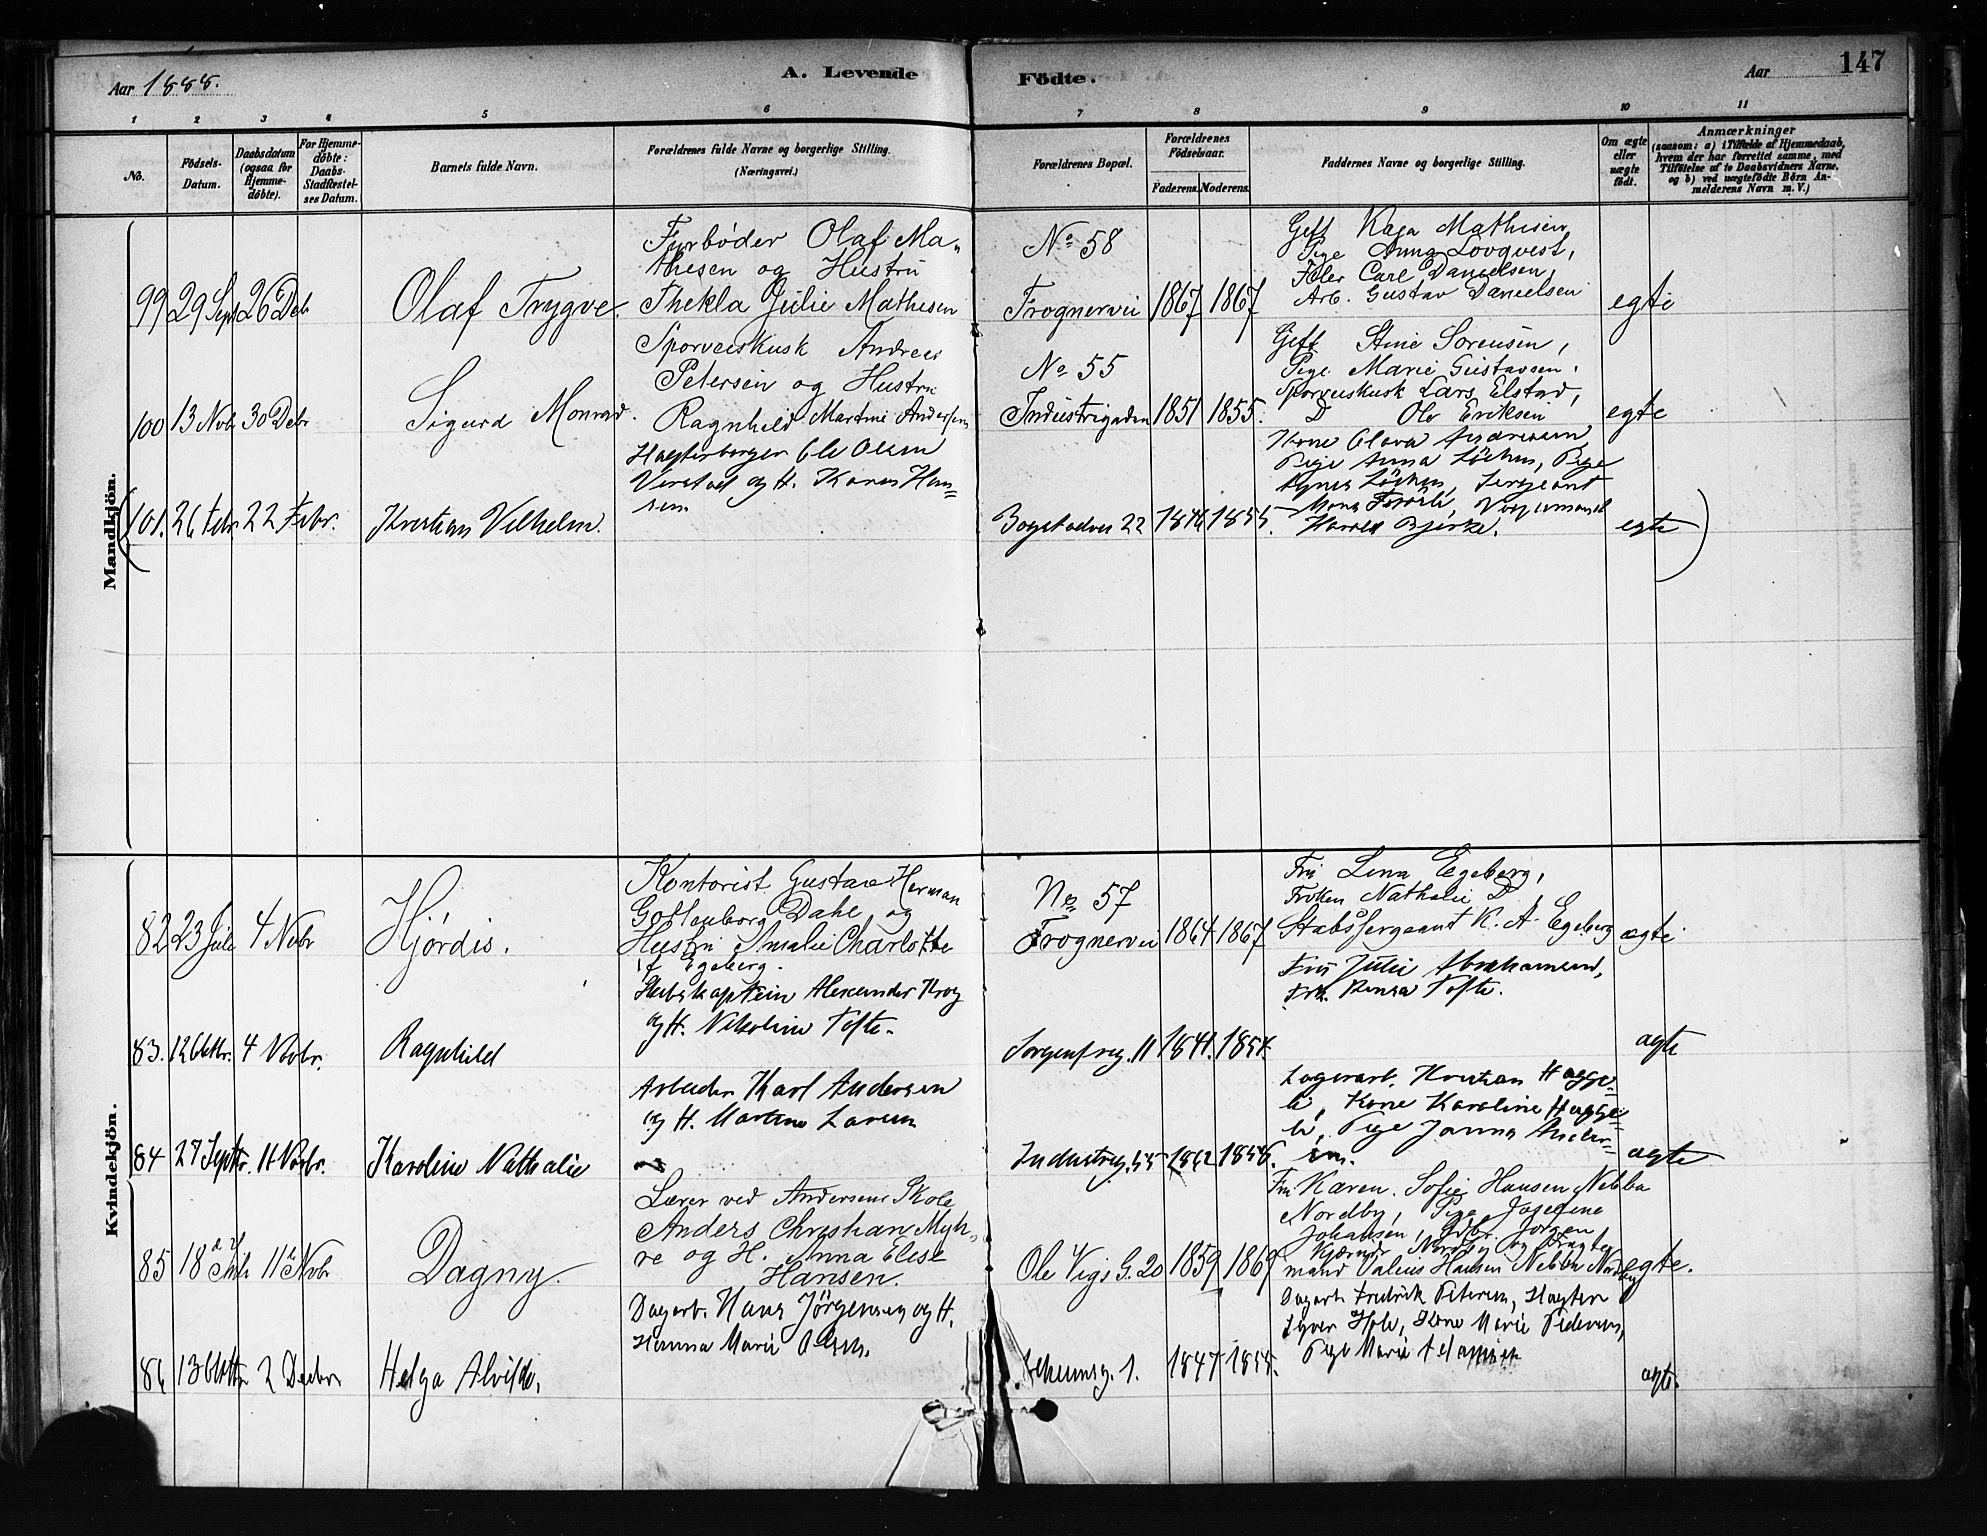 Aar 1888.
A. Levende
Födte.
Aar
147
1 2 3 4 5 6 7 8 9 10 11
No.
Födsels-Datum.
Daabsdatum (ogsaa for Hjemme-döbte).
For Hjemme-döbte: Daabs-Stadfæstel-ses Datum.
Barnets fulde Navn.
Forældrenes fulde Navne og borgerlige Stilling.
(Næringsvei.)
Forældrenes Bopæl.
Forældrenes Födselsaar.
Faderens. Moderens.
Faddernes Navne og borgerlige Stilling.
Om ægte eller uægte födt.
Anmærkninger
(saasom: a) i Tilfælde af Hjemmedaab,
hvem der har forrettet samme, med
Tilföielse af to Daabsvidners Navne,
og b) ved uægtefödte Börn An-
melderens Navn m. V.)
Mandkjön.
99 29 Sept 26 Debr
Olaf Trygve.
Fyrbøder Olaf Ma-
thesen og Hustru
Thekla Julie Mathesen
No 58
Frognervei
1867 1867
Gift Kaja Mathesen,
Pige Anna Lovqvest,
Carl Danielsen,
Arb. Gustav Danielsen
egte
100 13 Nobr 30 Debr
Sigurd Monrad.
Sporveiskusk Andreas
Petersen og Hustru
Ragnhild Martine Andersen
No 55
Industrigaden
1851 1855.
Gift Stine Sorensen,
Pige Marie Gustavsen.
Sporveiskusk Lars Elstad,
D Olv Eriksen
egte
101. 26 Febr 22 Febr.
Kristian Vilhelm.
Ole Olsen
og H. Karen Han-
sen.
Bogstadvei 22
1846 1855.
Kone Olava Andresen
Pige Anna Löchen, Pige
Agnes Löchen, Sergeant
Harald Bjerke.
egte
Kvindekjön.
82 23 Juli 4 Nobr
Hjørdis.
Kontorist Gustav Herman
Gottenborg Dahl og
Hustru Amalie Charlotte
f Egeberg.
No 57
Frognervei
1864 1867
Fru Lina Egeberg,
Frøken Nathalie D
Stabssergeant K. A. Egeberg
ægte
83. 12 Oktbr. 4 Novbr.
Ragnhild
Skibskaptein Alexander Krog
og H. Nikoline Tofte.
Sorgenfrig. 11
1841. 1854.
Fru Julie Abrahamsen,
Frk. Tofte.
ægte
84 27 Septbr. 11 Novbr.
Karoline Nathalie
Arbeider Karl Andersen
og H. Martine Larsen
Industrig. 55
1862 1856.
Lagerarb. Kristian Hagge-
li, Kone Karoline Hagge-
li, Pige Janna Ander-
sen.
ægte
85 18de Juli 11te Nobr
Dagny.
Lærer ved Andersens Skole
Anders Christian Myh-
re og H. Anna Elise
Hansen.
Ole Vigs G. 20
1859 1867
Fru Karen Sofie Hansen Nebba
Nordby, Pige Josefine
Johansen, Jørgen
Kjærner Nordby og Bragte-
mand Valius Hansen Nebba Nordby
egte.
86 13 Oktbr 2 Decbr
Helga Alvilde.
Dagarb. Hans Jörgensen og H.
Hanna Marie Olsen.
1.
1847 1855.
Dagarb. Fredrik Petersen,
Kone Marie Pedersen,
Pige Marie
ægte.